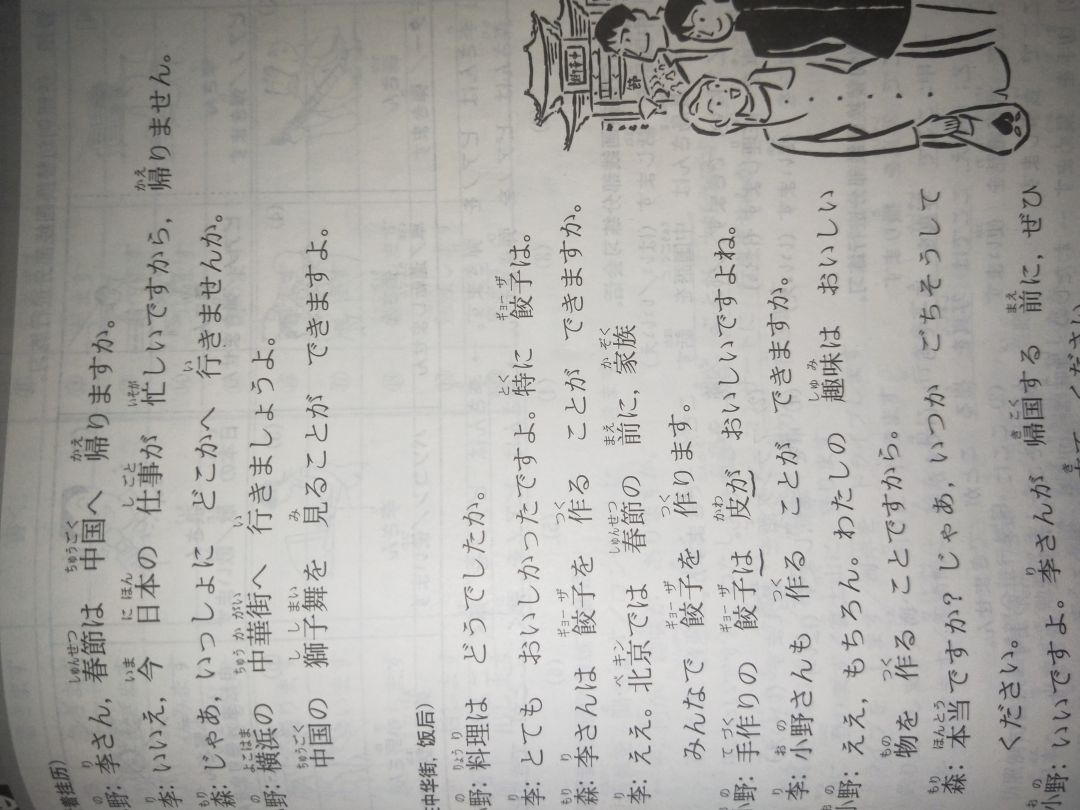 着挂历)
野: 李さん, 春節は 中国へ 帰りますか。
李: いいえ, 今 日本の 仕事が 忙しいですから, 帰りません。
森: じゃあ, いっしょに どこかへ 行きませんか。
野: 横浜の 中華街へ 行きましょうよ。
中国の 獅子舞を 見ることが できますよ。
中华街, 饭后)
小野: 料理は どうでしたか。
李: とても おいしかったですよ。特に 餃子は。
森: 李さんは 餃子を 作る ことが できますか。
李: ええ。北京では 春節の 前に, 家族
みんなで 餃子を 作ります。
小野: 手作りの 餃子は 皮が おいしいですよね。
李: 小野さんも 作る ことが できますか。
小野: ええ, もちろん。わたしの 趣味は おいしい
物を 作る ことですから。
森: 本当ですか? じゃあ, いつか ごちそうして
ください。
小野: いいですよ。李さんが 帰国する 前に, ぜひ
ください